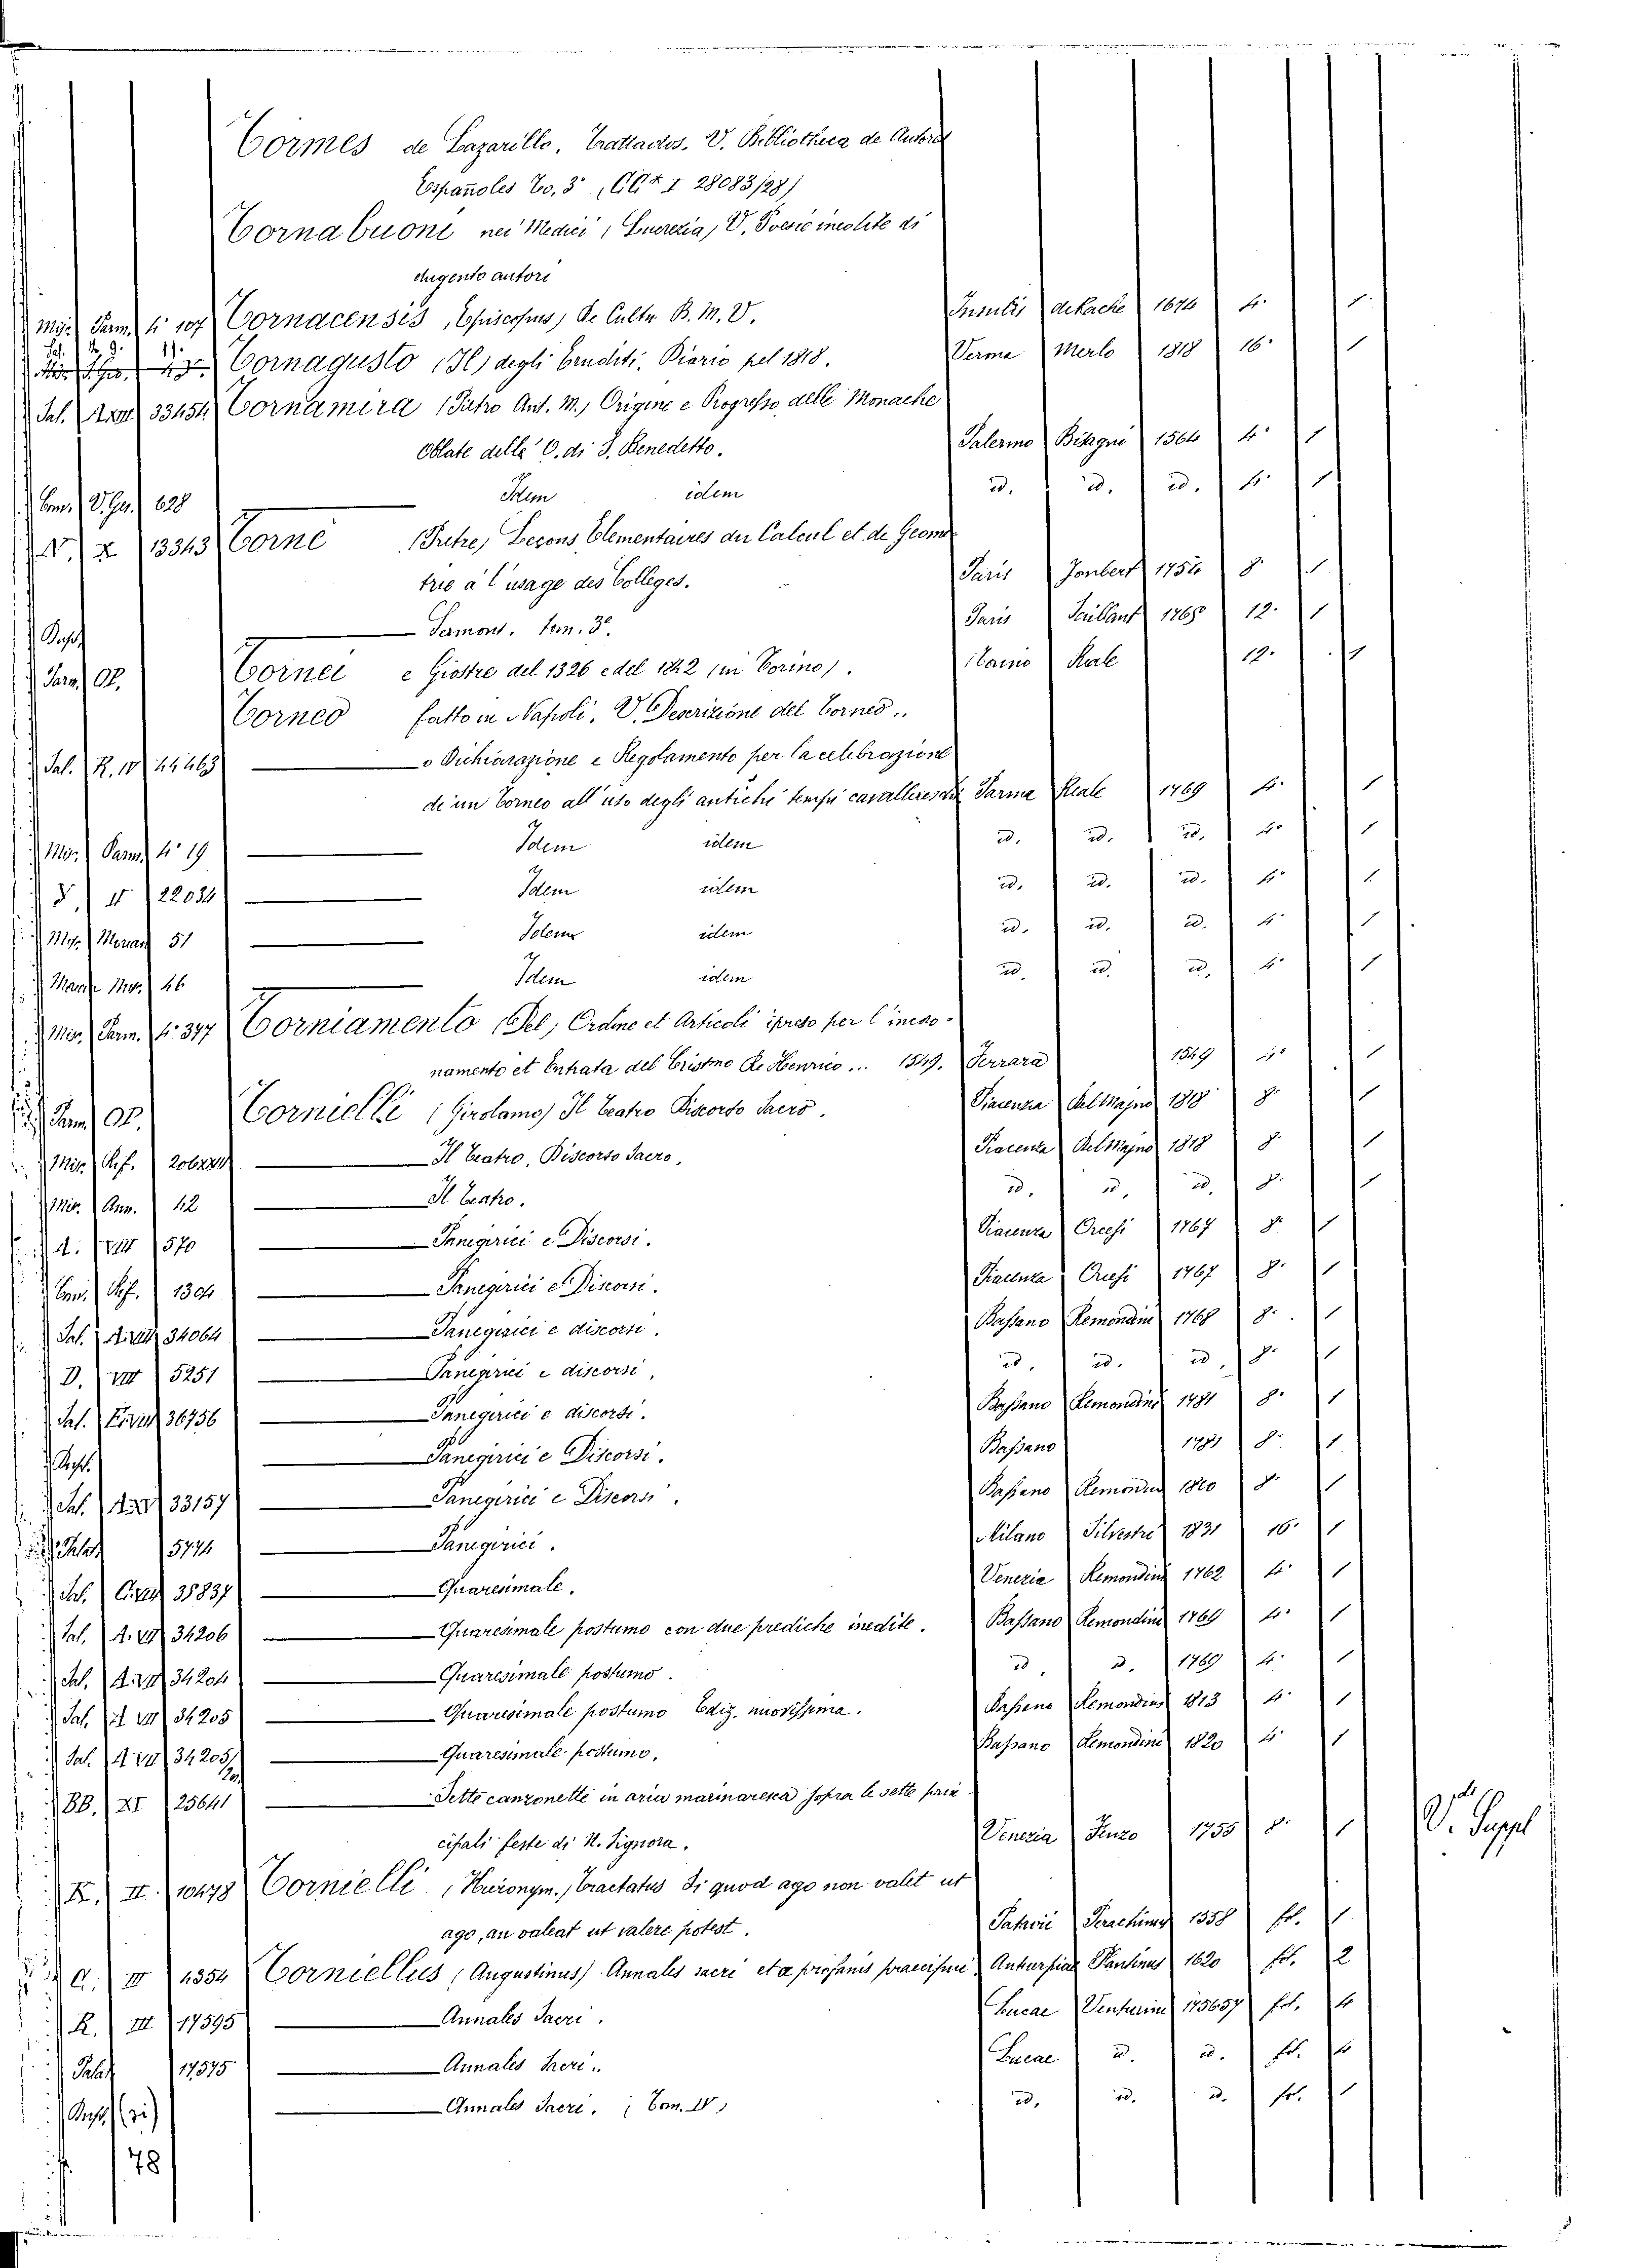 Tormes de Lazarillo, Trattados. V. Bibliotheca de Autores
Españoles To. 3° (CC* I 28083/28)
Tornabuoni nei Medici (Lucrezia) V. Poesie inedite di
dugento autori
Mis. Parm. 4° 107 Tornacensis (Episcopus) De Cultu B. M. V. Insulis de Rache 1674 4° 1
Tornagusto (Il) degli Eruditi. Diario pel 1818. Parma Merlo 1818 16° 1
Pal. 33454 Tornamira (Pietro Ant. M.) Origine e Progresso delle Monache
Oblate della O. di S. Benedetto. Palermo Bisagni 1564 4° 1
628 Idem idem id. id. id. 4° 1
V. X 13343 Torné (Pietre) Leçons Elementaires du Calcul et de Geome
trie a l'usage des Colleges. Paris Jombert 1754 8° 1
Sermons. tom. 3°. Paris Saillant 1765 12° 1
Parm. Tornei e Giostre del 1326 e del 1842 (in Torino). Torino Reale 12° 1
Torneo fatto in Napoli. V. Descrizione del Torneo..
Pal. R. IV 44463 o Dichiarazione e Regolamento per la celebrazione
di un Torneo all'uso degli antichi tempi cavallereschi Parma Reale 1769 4° 1
Mis. Parm. 4° 19 Idem idem id. id. id. 4° 1
22034 Idem idem id. id. id. 4° 1
Mis. 51 Idem idem id. id. id. 4° 1
Mis. 46 Idem idem id. id. id. 4° 1
Mis. Parm. 4° 347 Torniamento (Del) Ordine et Articoli ipreso per l'incoro-
namento et Entrata del Cristmo Re Henrico... 1549. Ferrara 1549 4° 1
Parm. Tornielli (Girolamo) Il Teatro Discorso Sacro. Piacenza Del Majno 1818 8° 1
Mis. Il Teatro, Discorso Sacro. Piacenza Del Majno 1818 8° 1
Mis. Ann. 42 Il Teatro. id. id. id. 8° 1
A. VIII 570 Panegirici e Discorsi. Piacenza Orcesi 1767 8° 1
1304 Panegirici e Discorsi. Piacenza Orcesi 1767 8° 1
Pal. 34064 Panegirici e discorsi. Bassano Remondini 1768 8° 1
D. VIII 5251 Panegirici e discorsi, id. id. id. 8° 1
Pal. 36756 Panegirici e discorsi. Bassano Remondini 1781 8° 1
Panegirici e Discorsi. Bassano 1781 8° 1
Pal. 33157 Panegirici e Discorsi. Bassano Remondini 1810 8° 1
Palat. 5774 Panegirici. Milano Silvestri 1831 16° 1
Pal. 35837 Quaresimale. Venezia Remondini 1762 4° 1
Pal. A. VII 34206 Quaresimale postumo con due prediche inedite. Bassano Remondini 1769 4° 1
Pal. A. VII 34204 Quaresimale postumo. id. id. 1769 4° 1
Pal. A VII 34205 Quaresimale postumo Ediz. nuovissima. Bassano Remondini 1813 4° 1
Pal. A VII 34205/20. Quaresimale postumo. Bassano Remondini 1820 4° 1
BB. XI 25641 Sette canzonette in aria marinaresca sopra le sette prin-
cipali feste di N. Signora. Venezia 1755 8° 1 V. Suppl
K. II. 10478 Tornielli (Hieronym.) Tractatus Si quod ago non valet ut
ago, an valeat ut valere potest. Patavii 1558 fol. 1
C. III 4354 Torniellus (Augustinus) Annales sacri et a profanis praecipui Antuerpiae Plantinus 1620 fol. 2
R. III 17595 Annales Sacri. Lucae Venturini 175657 fol. 4
Palat. 17575 Annales Sacri.. Lucae id. id. fol. 4
Annales Sacri. (Tom. IV) id. id. id. fol. 1
78